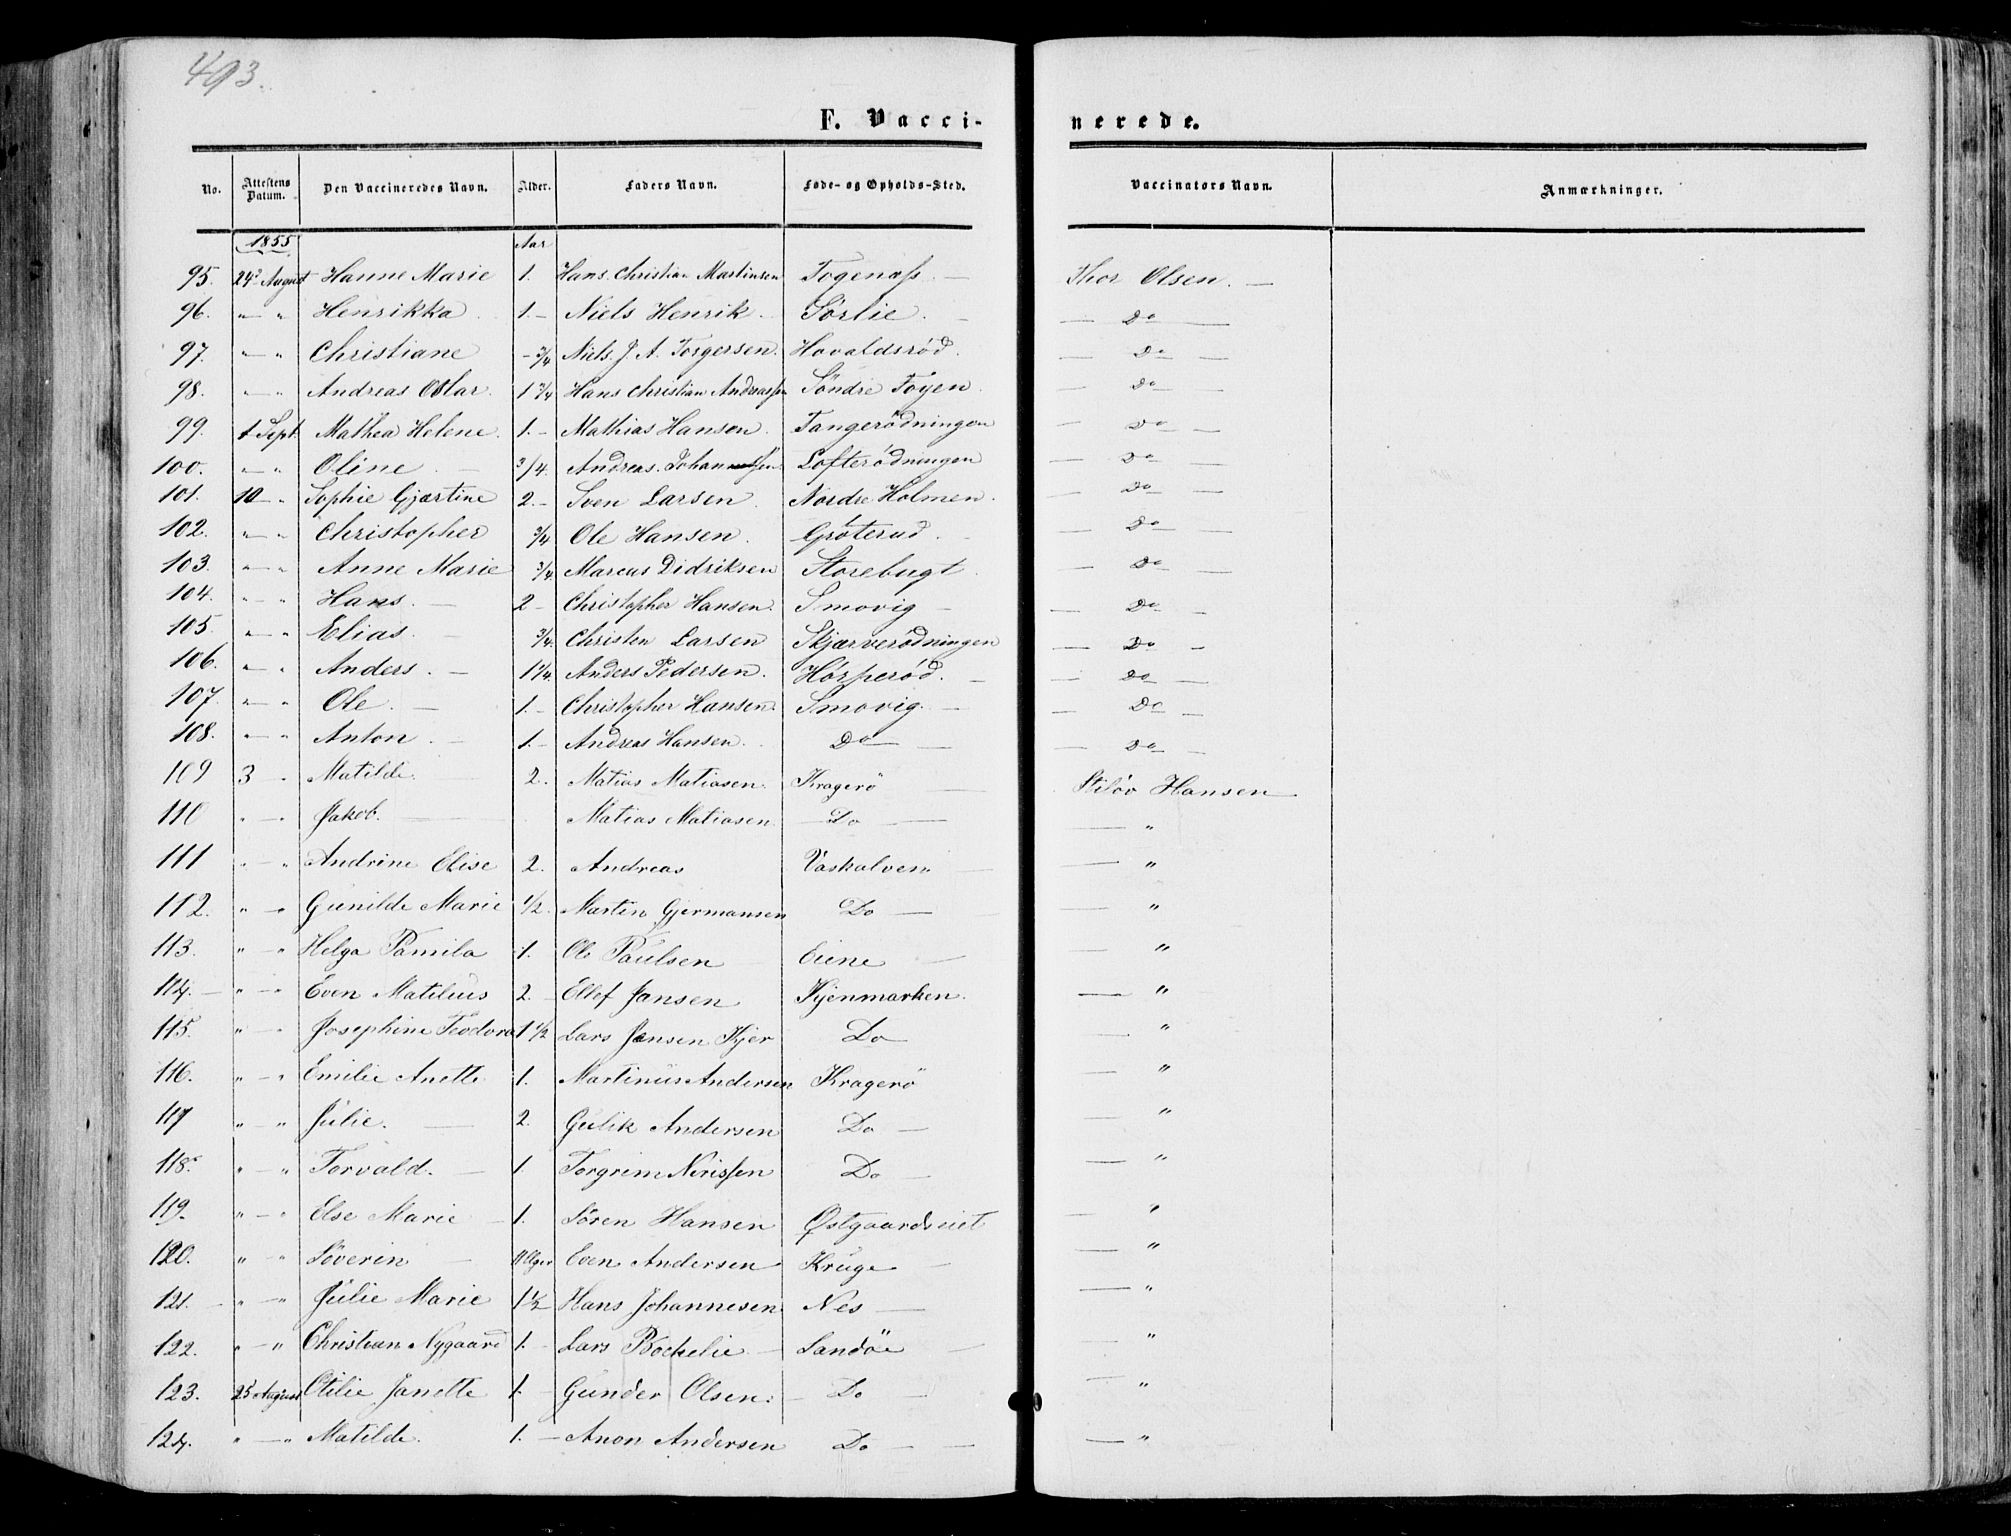 493.
F. Vaccinerede.
No. Attestens Datum. Den Vaccineredes Navn. Alder. Faders Navn. Føde- og Opholds-Sted. Vaccinators Navn. Anmærkninger.
1855 Aar
95. 24de August Hanne Marie 1. Hans Christian Martinsen Togenæss Thor Olsen.
96. " " Henrikka 1.- Niels Henrik Sörlie. Do
97. " " Christiane - 3/4 Niels J. A. Torgersen. Havaldsröd. Do
98. " " Andreas Oskar. 1 3/4 Hans Christian Andreassen Söndre Toyen Do
99. 1 Sept. Mathea Helene. 1.- Mathias Hansen. Tangerödningen Do
100. " " Oline 3/4. Andreas Johannessen Lofterödningen Do
101. 10 " Sophie Gjærtine 2.- Sven Larsen Nordre Holmen. Do
102. " " Christopher 3/4 Ole Hansen. Gröterud. Do
103. " " Anne Marie 3/4 Marcus Didriksen Storebugt Do
104. " " Hans. 2 - Christopher Hansen. Smovig Do
105. " " Elias. 3/4. Christen Larsen Skjærverödningen Do
106. " " Anders. 1 1/4. Anders Pedersen. Hörperöd. Do
107. " " Ole. 1.- Christopher Hansen. Smovig. Do
108. " " Anton. 1.- Andreas Hansen. Do Do
109 3 " Matilde. 2. Matias Matiasen. Kragerö Hansen
110 " " Jakob. Matias Matiasen Do "
111 " " Andrine Elise 2. Andreas Vaskalven "
112. " " Gunilde Marie 1/2. Martin Gjermansen Do "
113. " " Helga Pamila 1. Ole Paulsen Eiene "
114. " " Even Matilius 2. Ellef Jansen Kjenmarken. "
115. " " Josephine Teodora 1 1/2 Lars Jansen Kjer Do "
116. " " Emilie Anette 1. Martinius Andersen Kragerö "
117 " " Julie. 2. Gulik Andersen Do "
118. " " Torvald. 1. Torgrim Nirissen Do "
119. " " Else Marie 1. Sören Hansen Østgaardseiet "
120. " " Söverin 11 Uger Even Andersen Kruge "
121. " " Julie Marie 1 1/2 Hans Johannesen Nes "
122. " " Christian Nygaard 1. Lars Bochelie Sandöe "
123. 25 August Otilie Janette 1. Gunder Olsen. Do "
124. " " Matilde. 1. Anon Andersen Do "